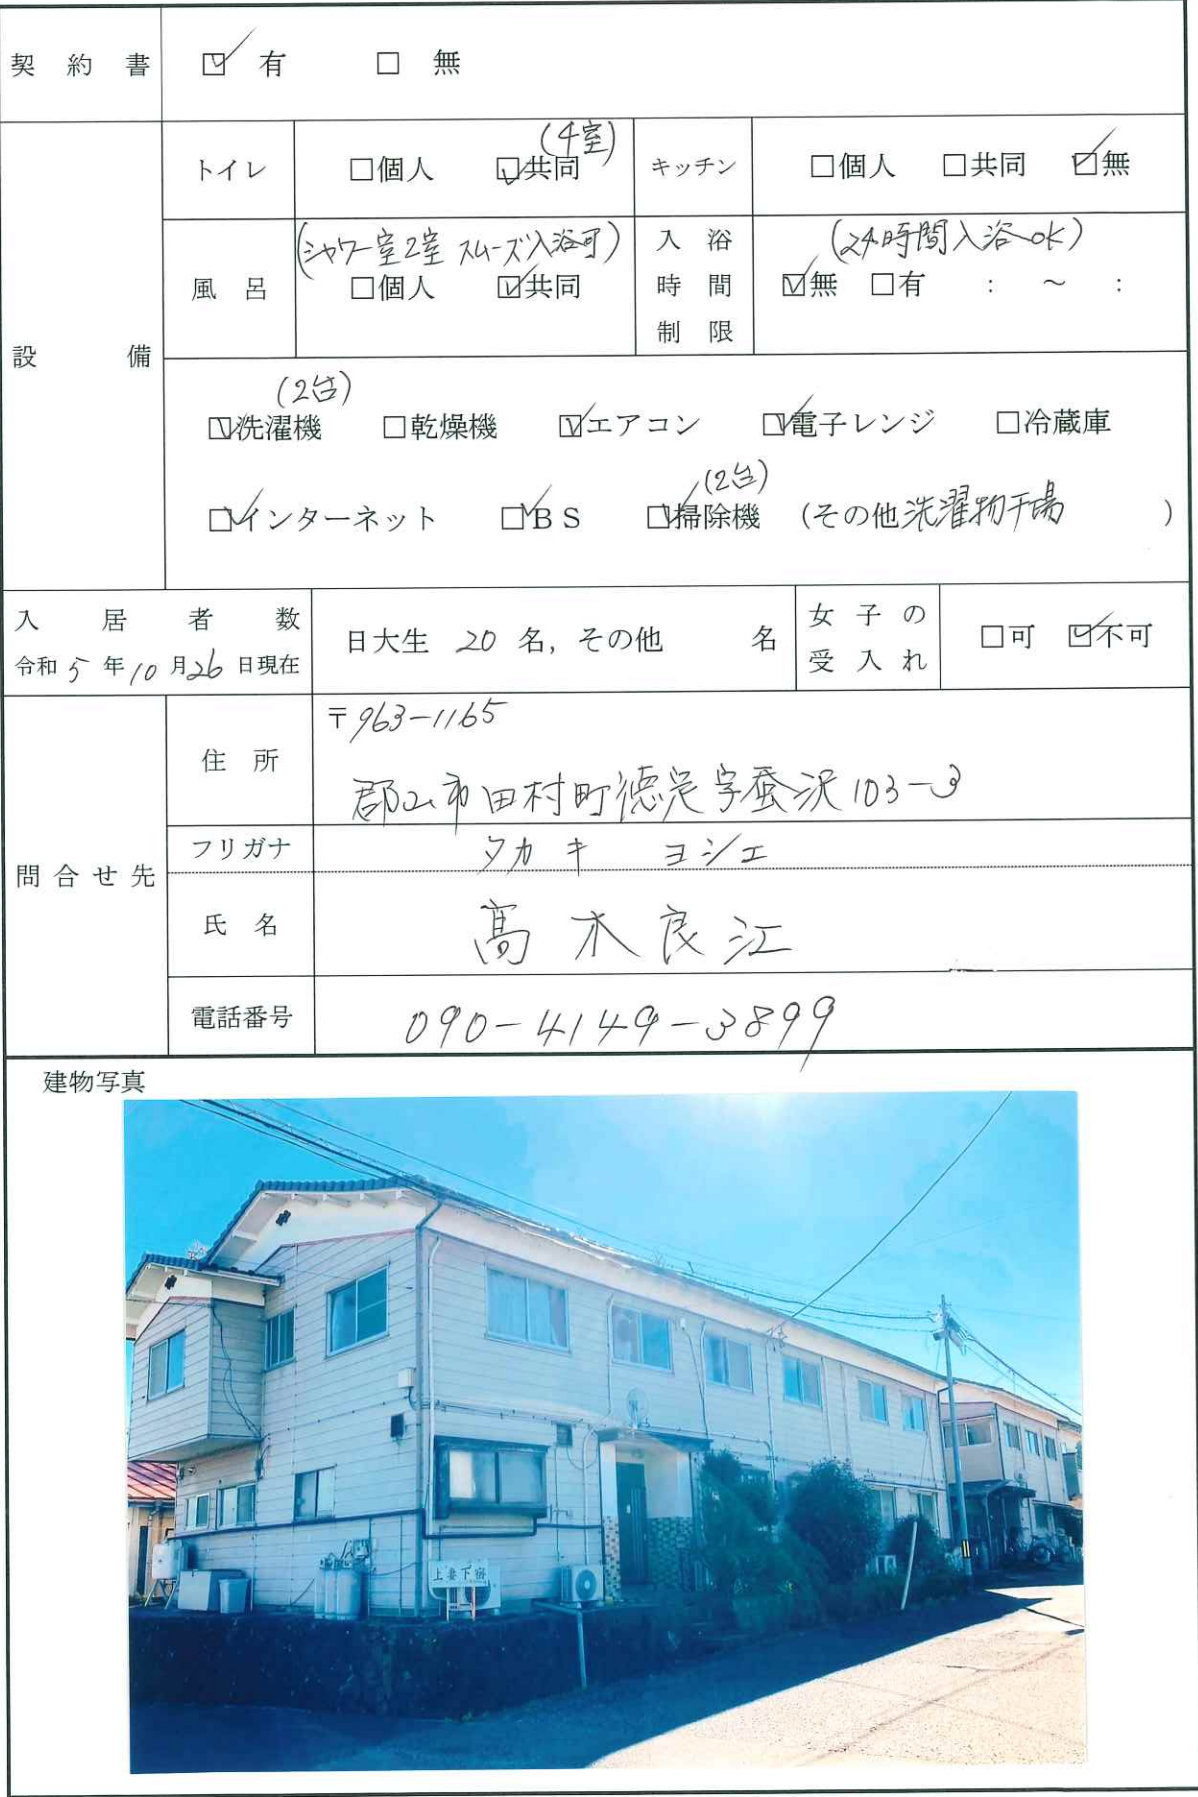 契約書 ☑有 □無
設備
(4室)
トイレ □個人 ☑共同 キッチン □個人 □共同 ☑無
(シャワー室2室 スムーズ入浴可) (24時間入浴OK)
風呂 □個人 ☑共同 入浴時間制限 ☑無 □有 : ～ :
(2台)
☑洗濯機 □乾燥機 ☑エアコン ☑電子レンジ □冷蔵庫
(2台)
☑インターネット ☑BS ☑掃除機 (その他 洗濯物干場 )
入居者数
令和5年10月26日現在
日大生 20 名, その他 名
女子の受入れ □可 ☑不可
問合せ先
住所
〒963-1165
郡山市田村町徳定字蚕沢103-3
フリガナ タカキ ヨシエ
氏名 髙木良江
電話番号 090-4149-3899
建物写真
上妻下宿